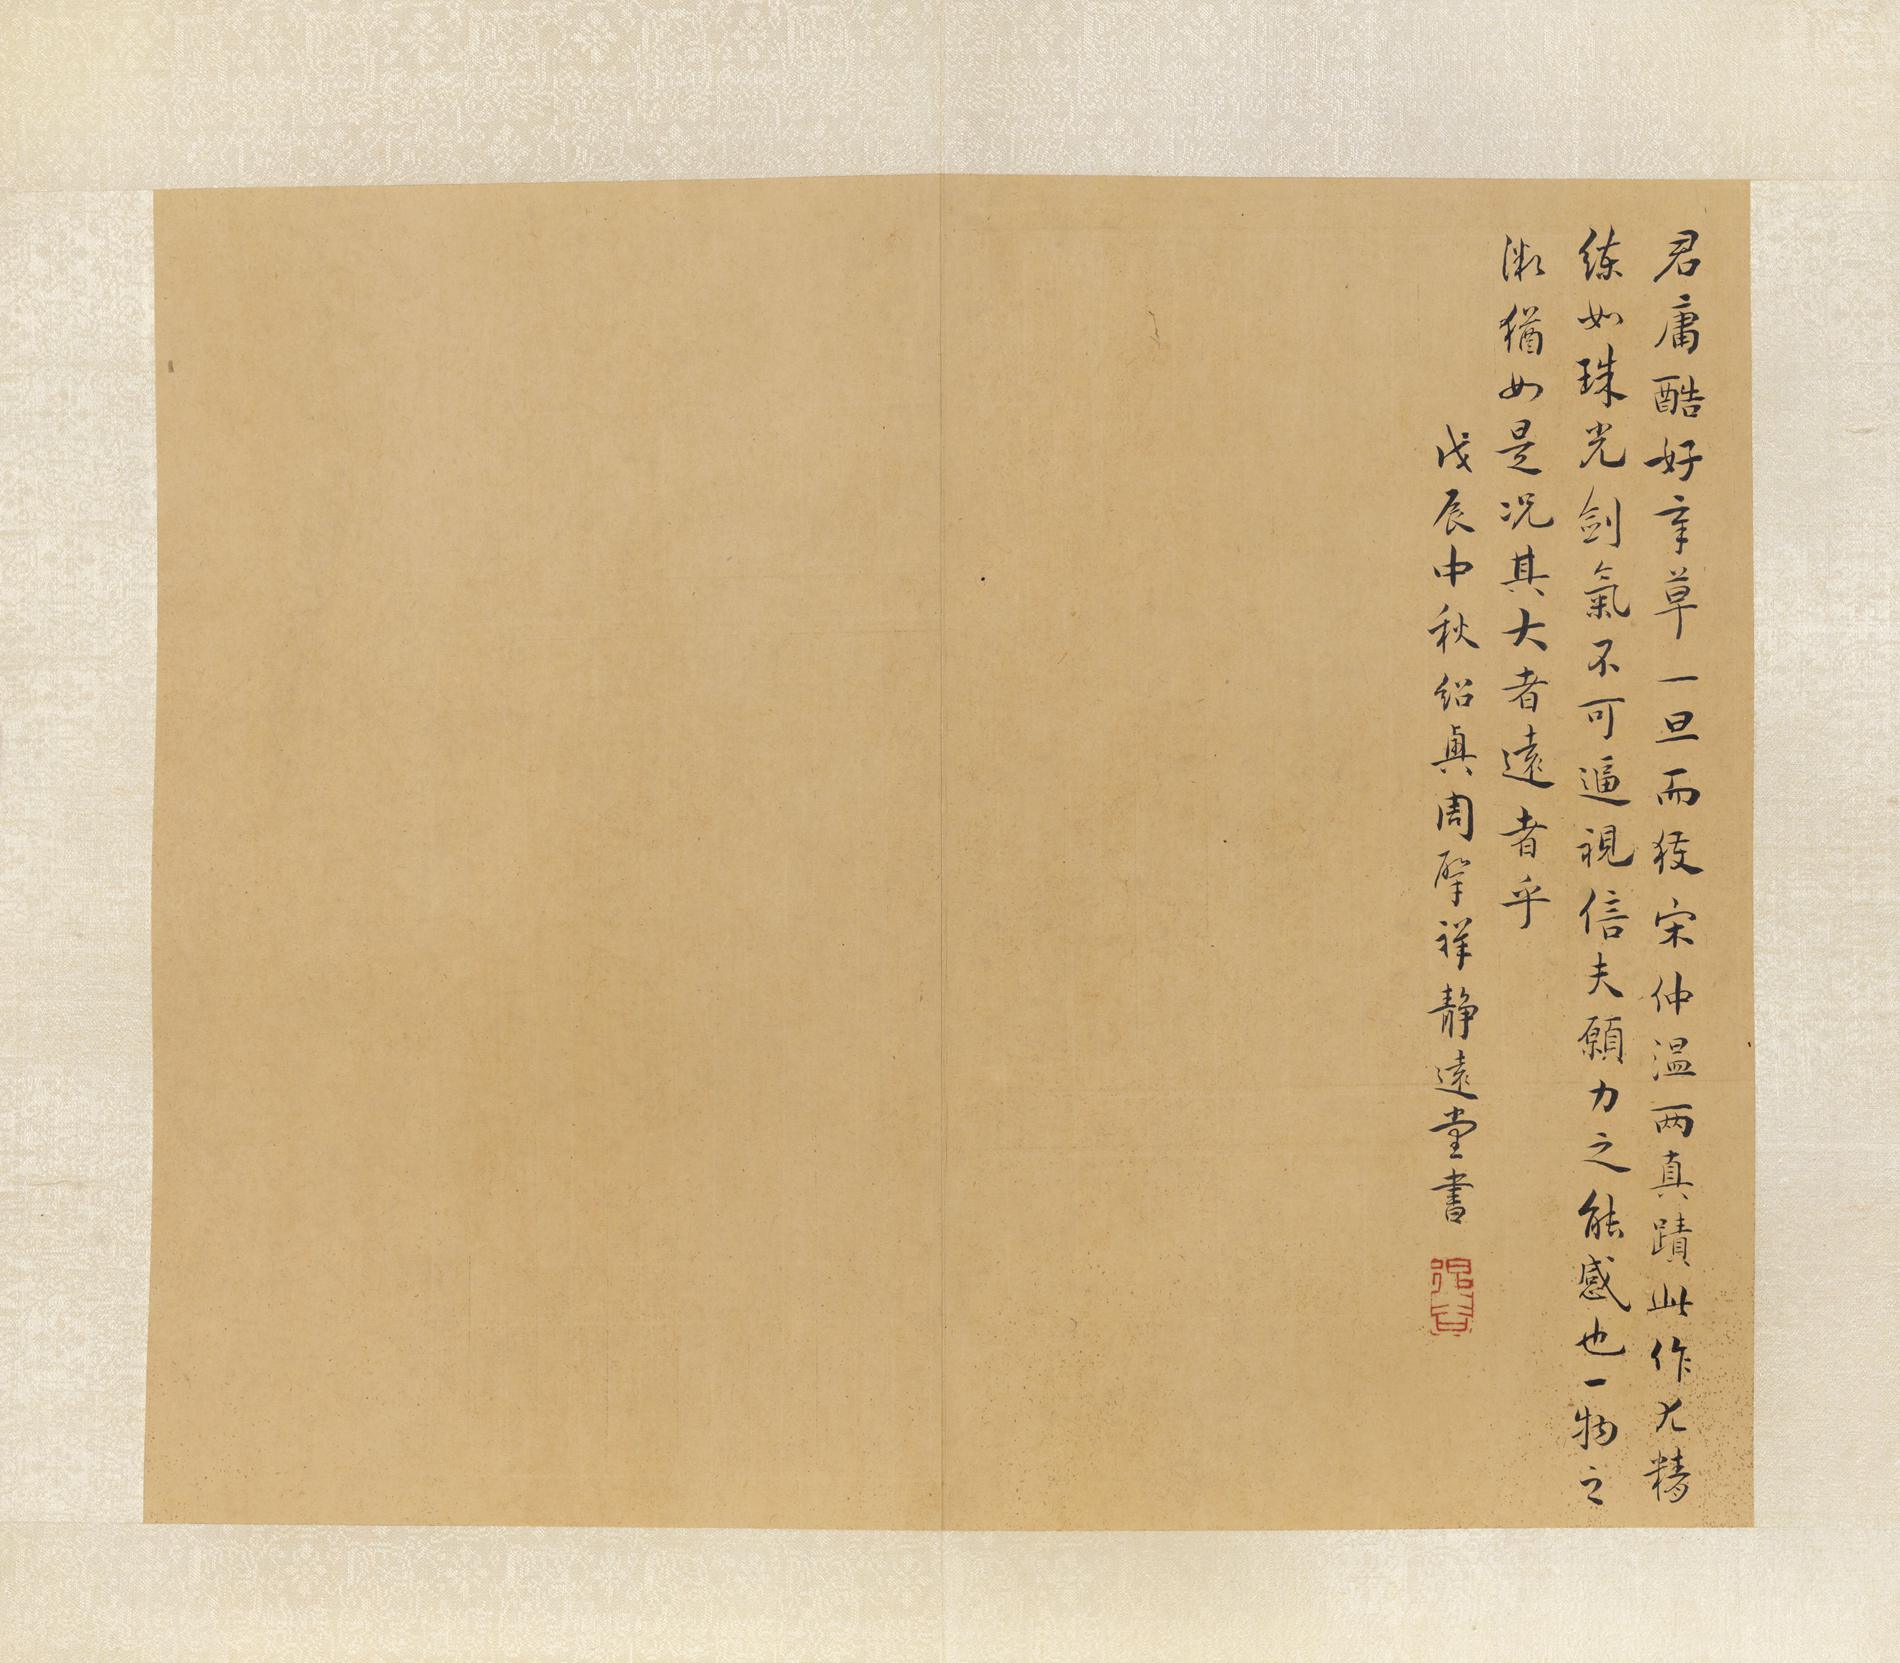 君庸酷好章草一旦而獲宋仲温兩真蹟此作尤精
练如珠光劍氣不可逼視信夫願力之能感也一物之
微猶如是況其大者遠者乎
戊辰中秋绍興周肇祥静遠堂書